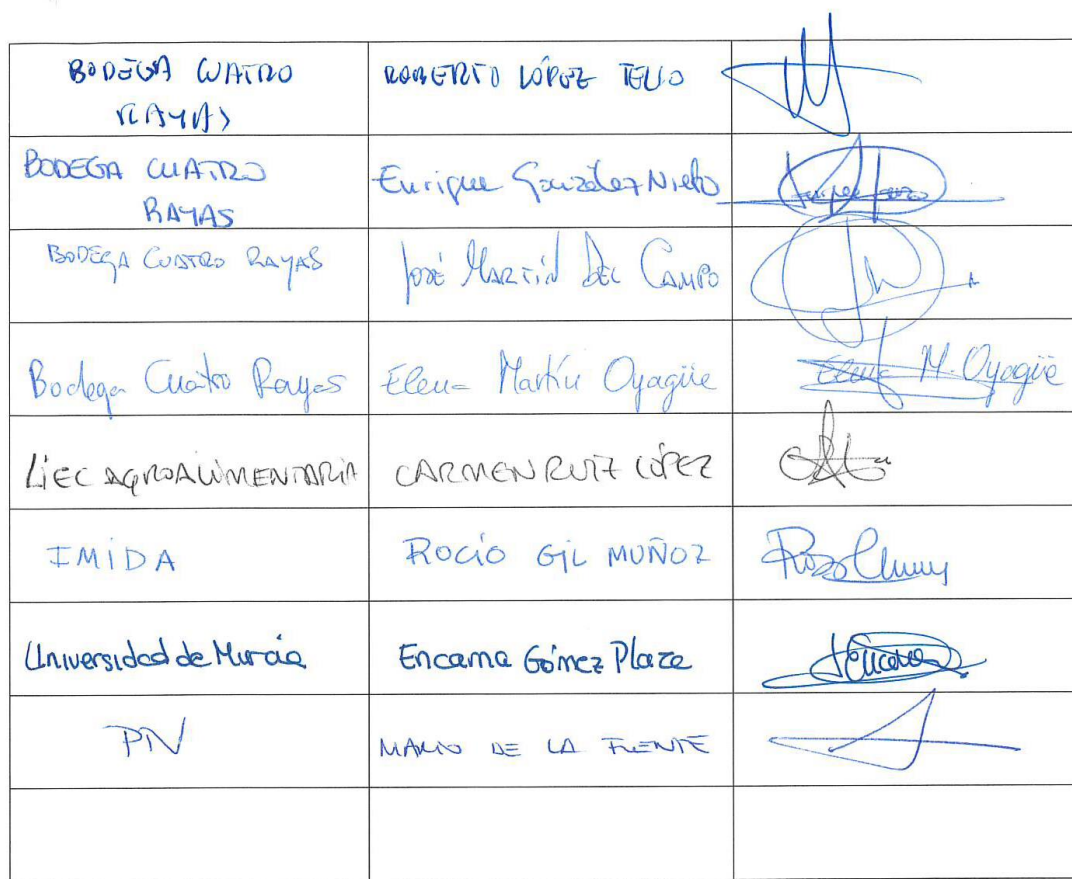 BODEGA CUATRO
RAYAS
ROBERTO LÓPEZ TELLO
BODEGA CUATRO
RAYAS
Enrique González Nieto
BODEGA CUATRO RAYAS
José MARTÍN DEL CAMPO
Bodega Cuatro Rayas
Elena Martín Oyagüe
Elena M. Oyagüe
LiEC AGROALIMENTARIA
CARMEN RUIZ LÓPEZ
IMIDA
ROCÍO GIL MUÑOZ
Universidad de Murcia
Encarna Gómez Plaza
PTV
MARIO DE LA FUENTE